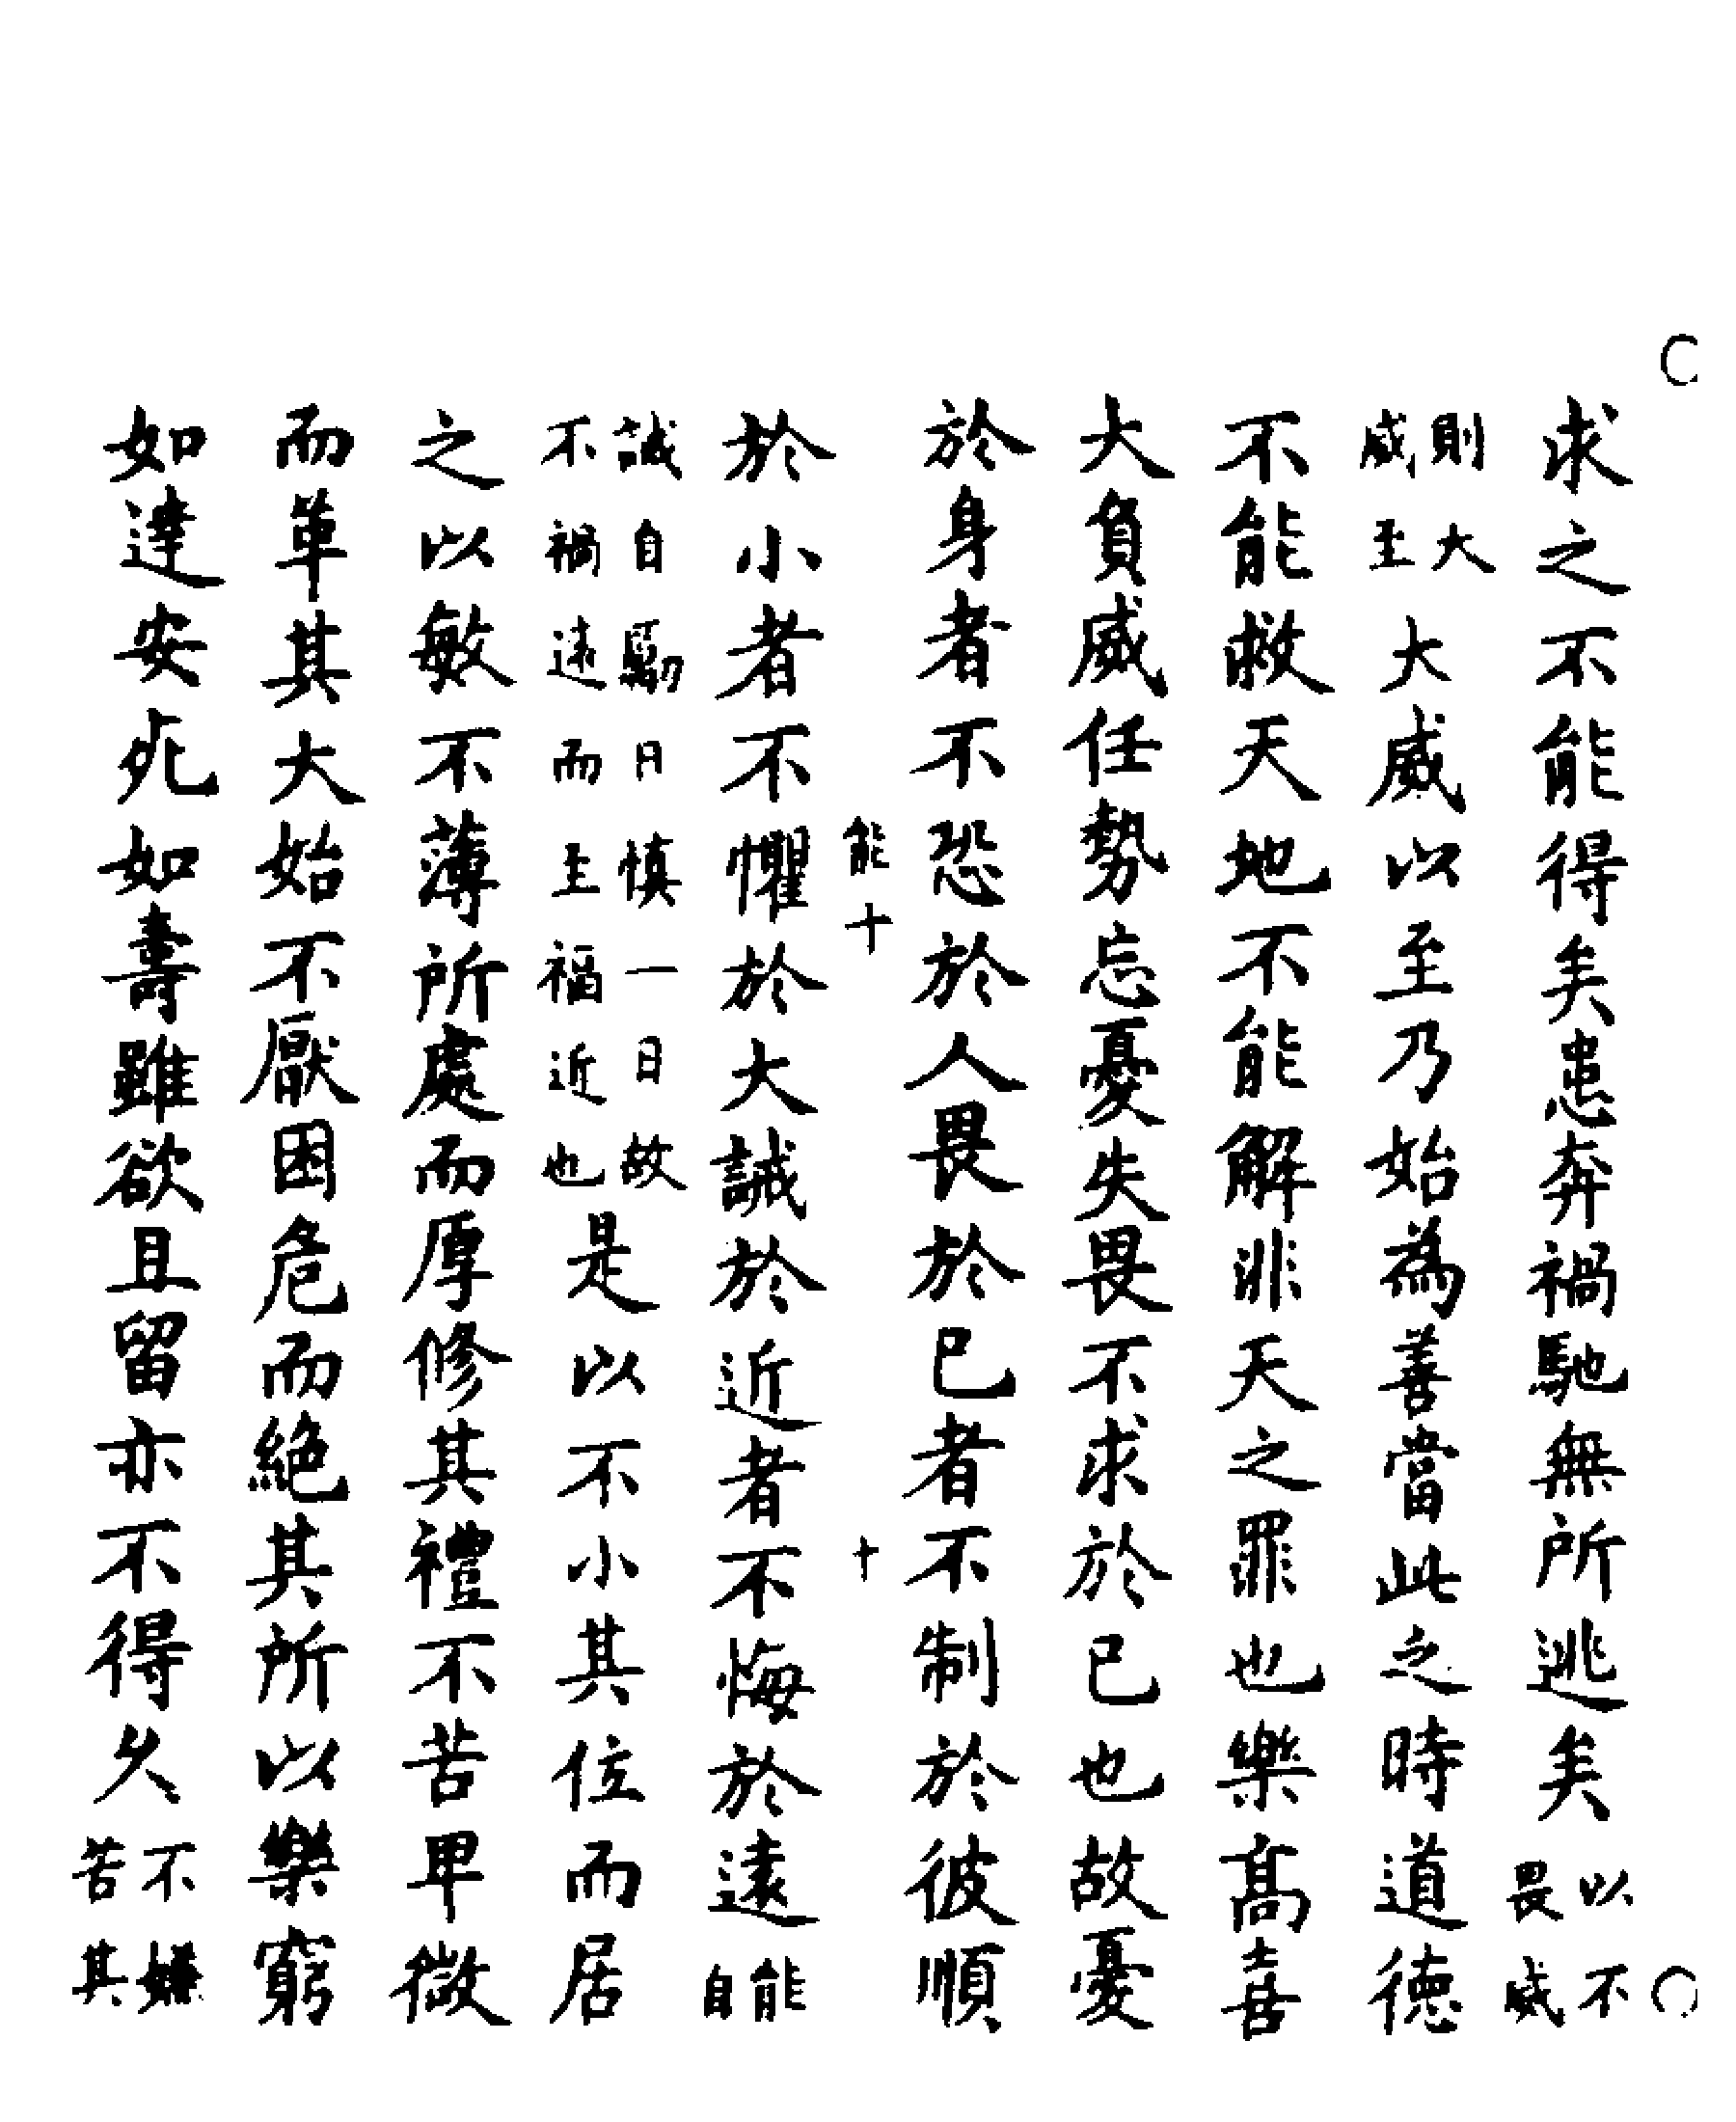 求之不能得矣患奔禍馳無所逃矣以不畏威
則大威至大威以至乃始為善當此之時道德
不能救天地不能解非天之罪也樂髙喜
大負威任勢忘憂失畏不求於已也故憂
於身者不恐於人畏於已者不制於彼順
能十十
於小者不懼於大誡於近者不悔於遠能自
誡自勵日慎一日故不禍遠而至福近也是以不小其位而居
之以敏不薄所處而厚修其禮不苦卑微
而革其大始不厭困危而絶其所以樂窮
如達安死如壽雖欲且留亦不得久不嫌苦其